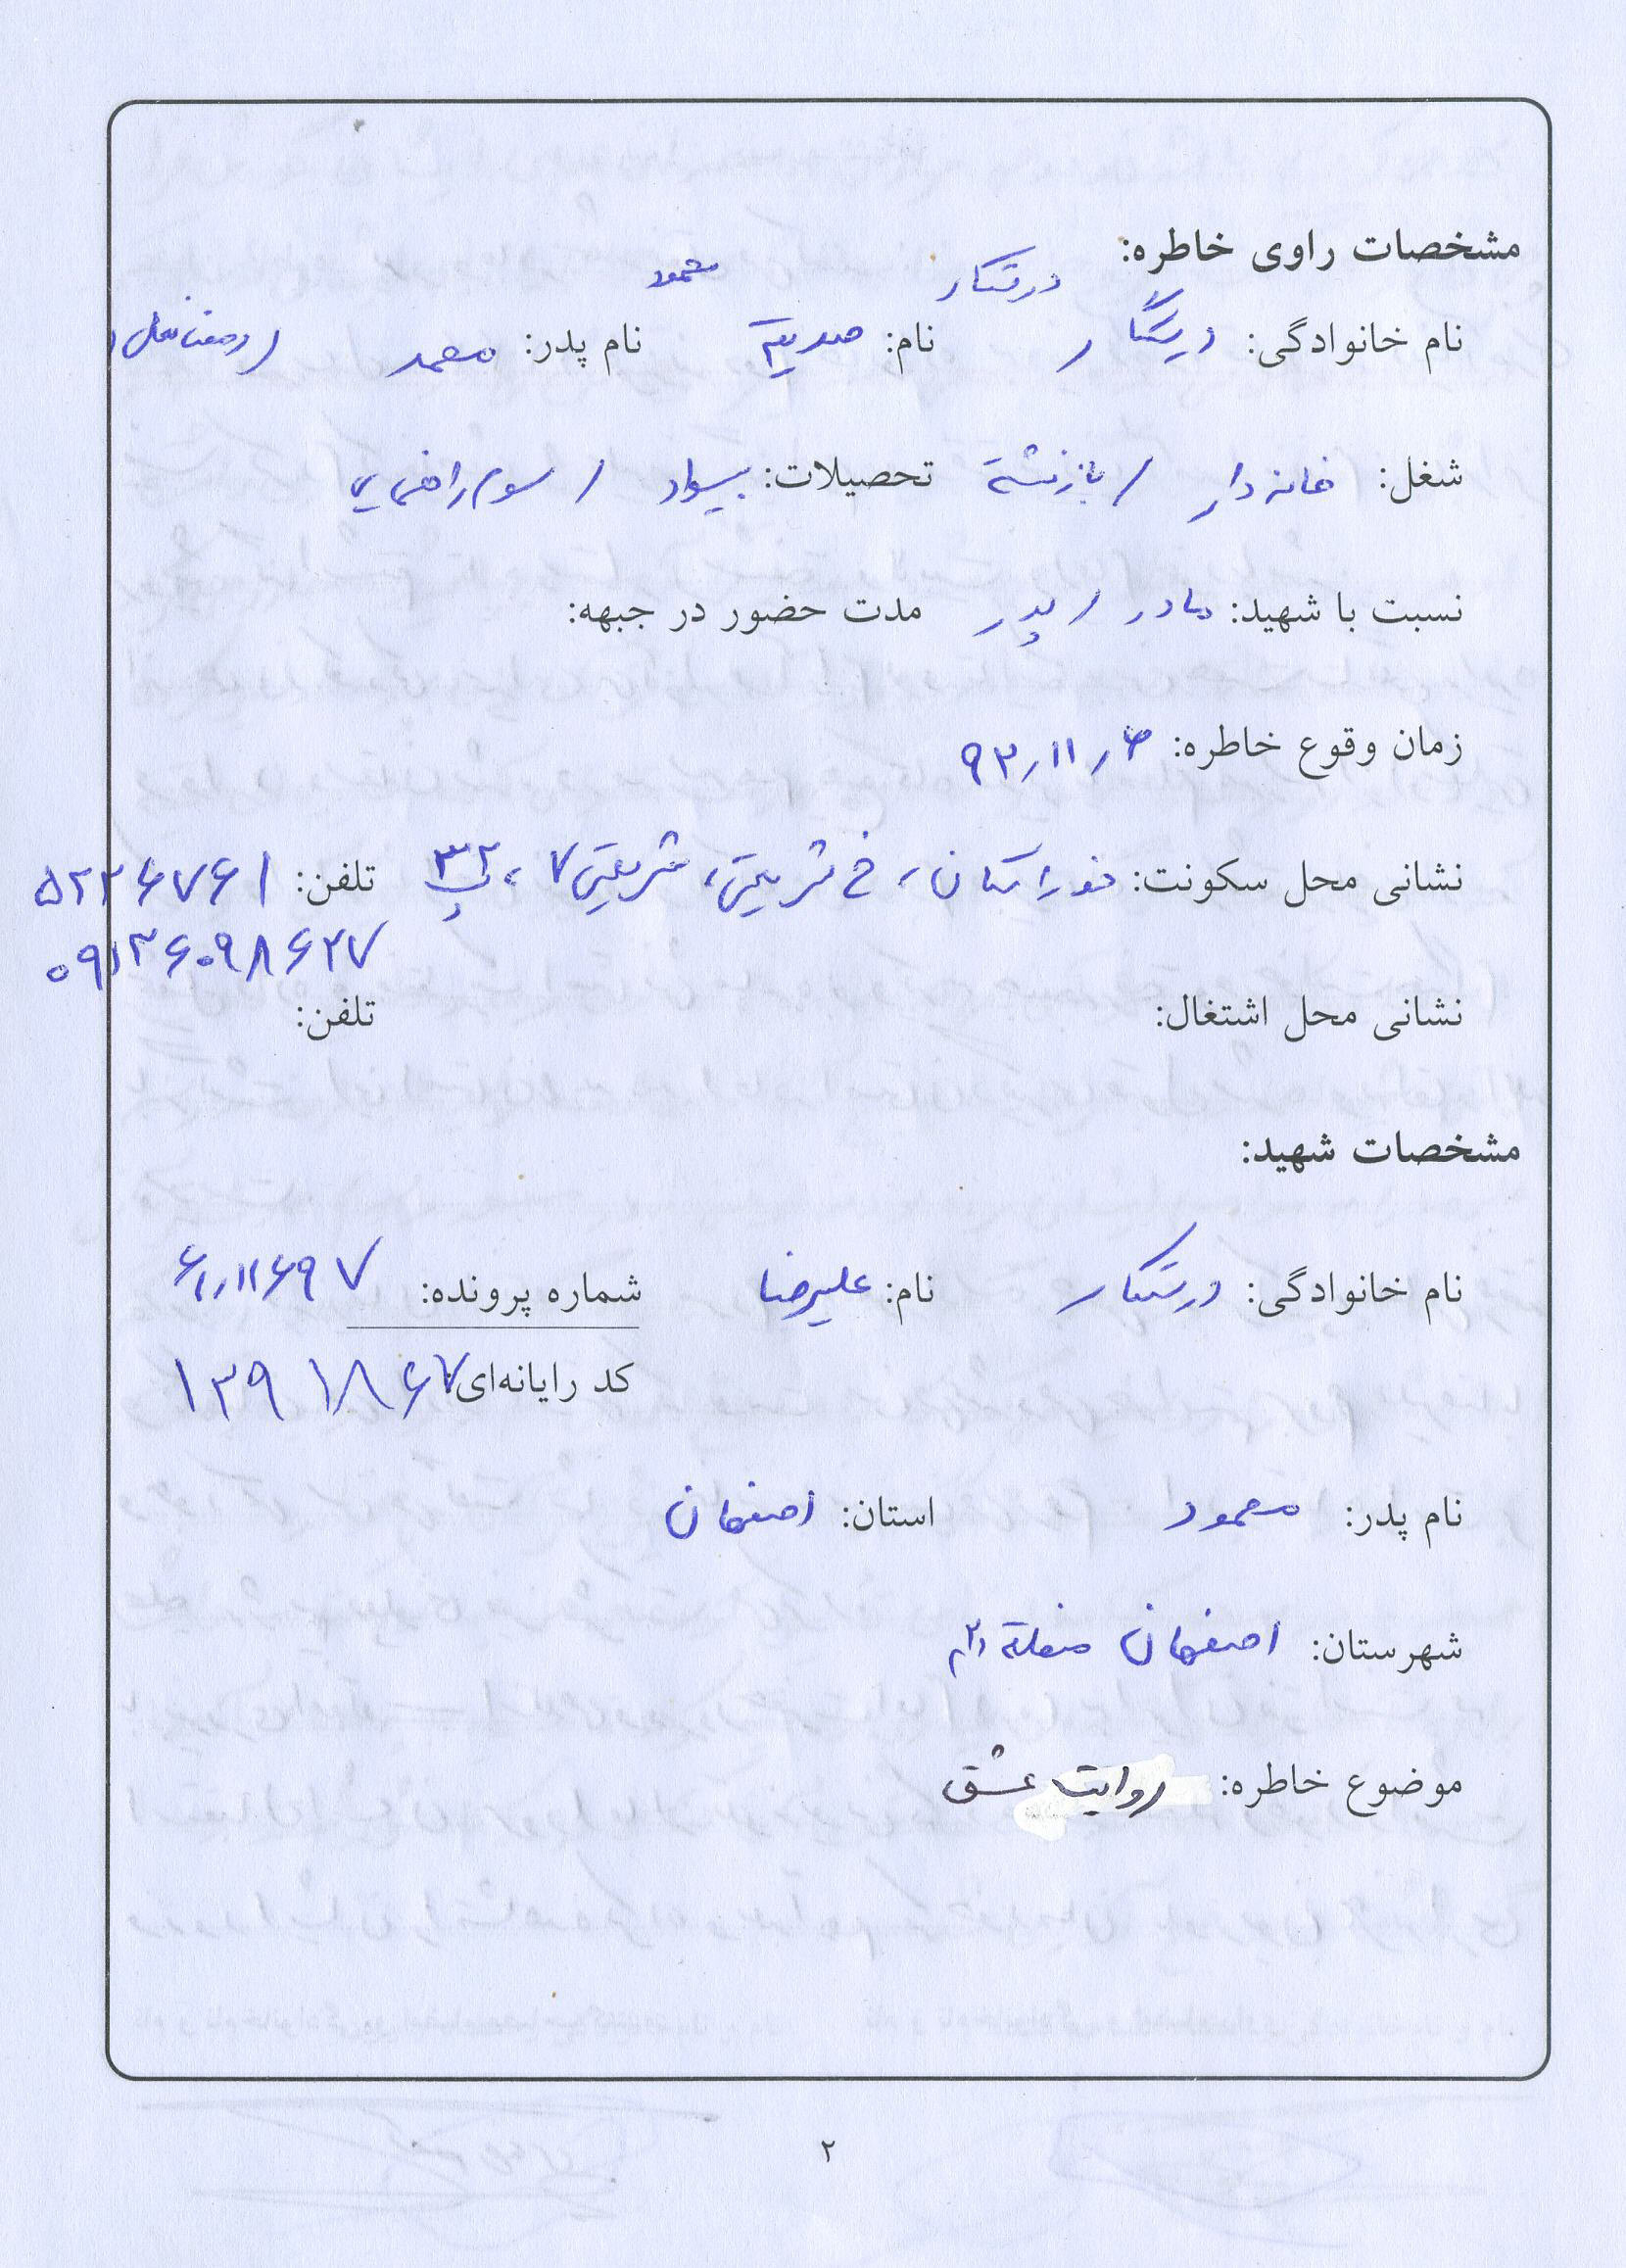 مشخصات راوی خاطره:
درستکار محمود
نام خانوادگی: نام: صدیقه نام پدر: محمد / رمضانعلی
شغل: خانه دار / بازنشسته تحصیلات: بیسواد / سوم راهنمایی
نسبت با شهید: مادر / پدر مدت حضور در جبهه:
زمان وقوع خاطره: ۹۳٫۱۱٫۶
نشانی محل سکونت: خوراسگان، خ شریعتی، شریعتی ۷، پ ۳۲ تلفن: ۵۲۲۶۷۶۱
۰۹۱۳۶۰۹۸۶۲۷
نشانی محل اشتغال: تلفن:
مشخصات شهید:
نام خانوادگی: درستکار نام: علیرضا شماره پرونده: ۶۱٫۱۱۶۹۷
کد رایانه‌ای: ۱۳۹۱۸۶۷
نام پدر: محمود استان: اصفهان
شهرستان: اصفهان منطقه ۲
موضوع خاطره: روایت عشق
۲